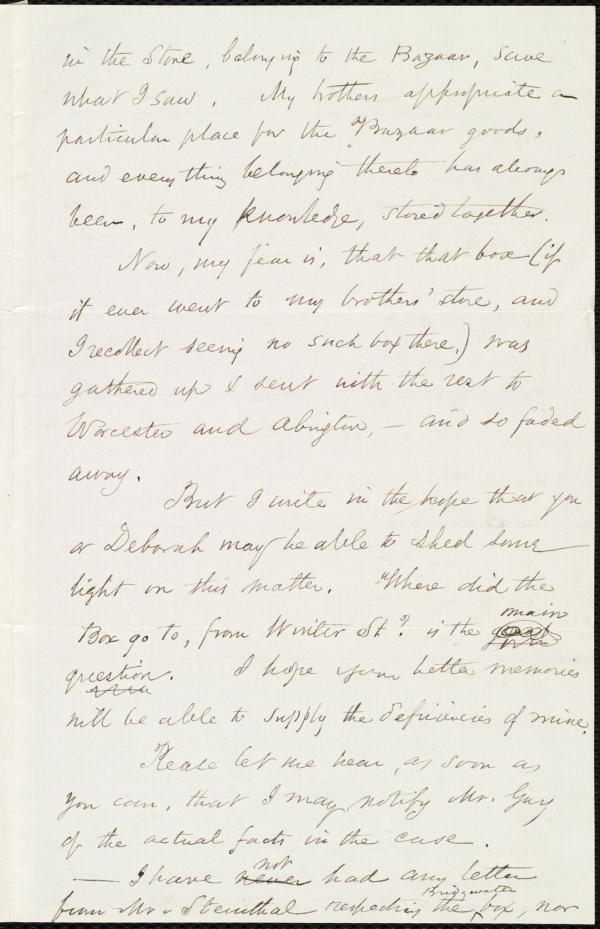 in the Store, belonging to the Bazaar, save
what I saw. My brothers appropriate a
particular place for the Bazaar goods,
and everything belonging thereto has always
been, to my knowledge, stored together.
Now, my fear is, that that box (if
it ever went to my brothers' store, and
I recollect seeing no such box there,) was
gathered up & sent with the rest to
Worcester and Abington, — and so faded
away.
But I write in the hope that you
or Deborah may be able to shed some
light on this matter. "Where did the
Box go to, from Winter St.? is the main
question. I hope your better memories
will be able to supply the deficiencies of mine.
Please let me hear, as soon as
you can, that I may notify Mr. Guy
of the actual facts in the case.
— I have never not had any letter
from Mr. Steinthal respecting the Bridgwater box, nor